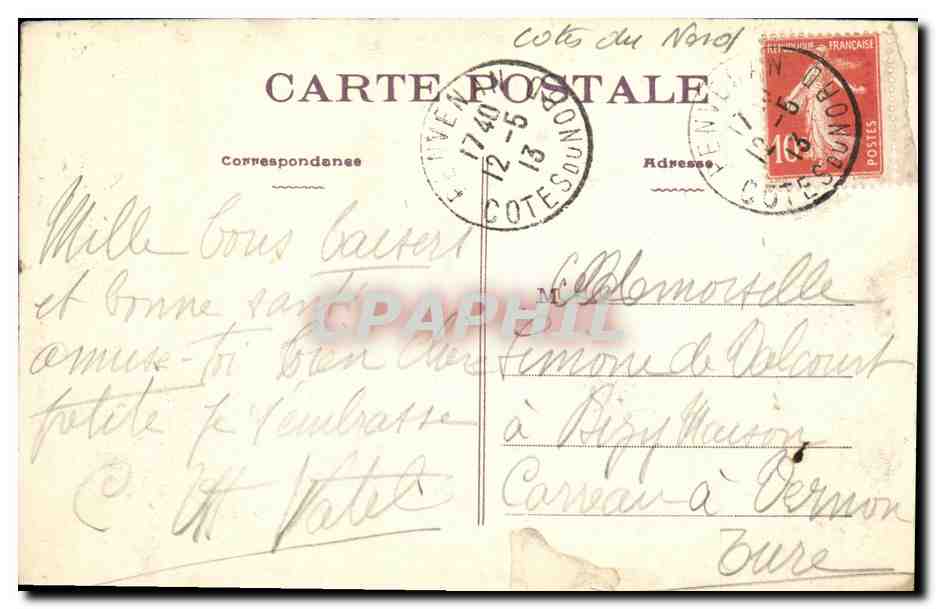 Cotes du Nord
CARTE POSTALE
Correspondance
Adresse
17 40
12 - 5
13
COTES DU NORD
17
12 - 5
13
COTES DU NORD
REPUBLIQUE FRANÇAISE
10
POSTES
Mille bons baisers
et bonne santé
amuse-toi bien chère
petite je t'embrasse
C
M
Mademoiselle
Simone de Valcourt
à Bizy Maison
Carreau à Vernon
Eure
CPAPHIL